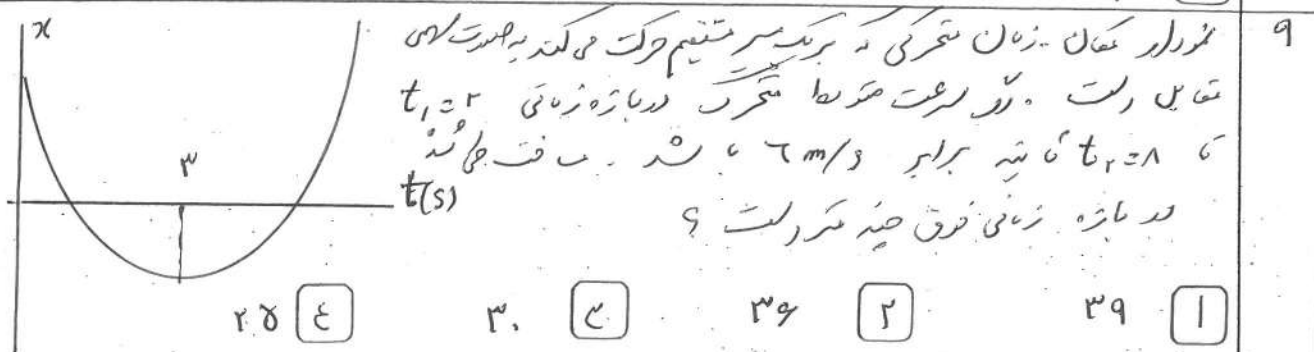 ۹
x
نمودار مکان - زمان متحرکی که بر یک مسیر مستقیم حرکت می کند به صورت سهمی
مقابل است. اگر سرعت متوسط متحرک در بازه زمانی t₁=۲
تا t₂=۸ ثانیه برابر ۶ m/s باشد. مسافت طی شده
در بازه زمانی فوق چند متر است ؟
۳
t(s)
۱ ۳۹ ۲ ۳۶ ۳ ۳۰ ۴ ۲۵